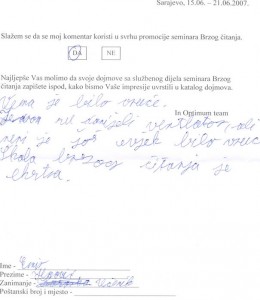 Sarajevo, 15.06. – 21.06.2007.
Slažem se da se moj komentar koristi u svrhu promocije seminara Brzog čitanja.
DA NE
Najljepše Vas molimo da svoje dojmove sa službenog dijela seminara Brzog
čitanja zapišete ispod, kako bismo Vaše impresije uvrstili u katalog dojmova.
In Optimum team
je bilo vruće.
su donijeli ventilator, ali
je još uvjek bilo vruće
Škola brzog čitanja je
ekstra.
Ime -
Prezime -
Zanimanje - Učenik
Poštanski broj i mjesto -